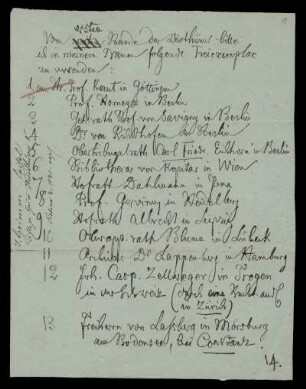 vierten
Vom Bande der Weisthümer bitte
ich in meinem Namen folgende Freiexemplare
zu versenden:
1 an Hr. Prof. Kraut in Göttingen
2 Prof. Homeyer in Berlin
3 Geh. rath Prof von Savigny in Berlin
4 Hr. von Richthofen in Berlin
5 Obertribunalrath Carl Friedr. Eichhorn in Berlin
6 Bibliothecar von Kopitar in Wien
7 Hofrath Dahlmann in Jena
8 Prof. Gervinus in Heidelberg
9 Hofrath Albrecht in Leipzig
10 Oberapp. rath Blume in Lübeck
11 Archivar Dr Lappenberg in Hamburg
12 Joh. Casp. Zellweger in Trogen
in der Schweiz (durch eine
in Zürich)
13 Freiherrn von Laßberg in Mörsburg
am Bodensee, bei Constanz
14.